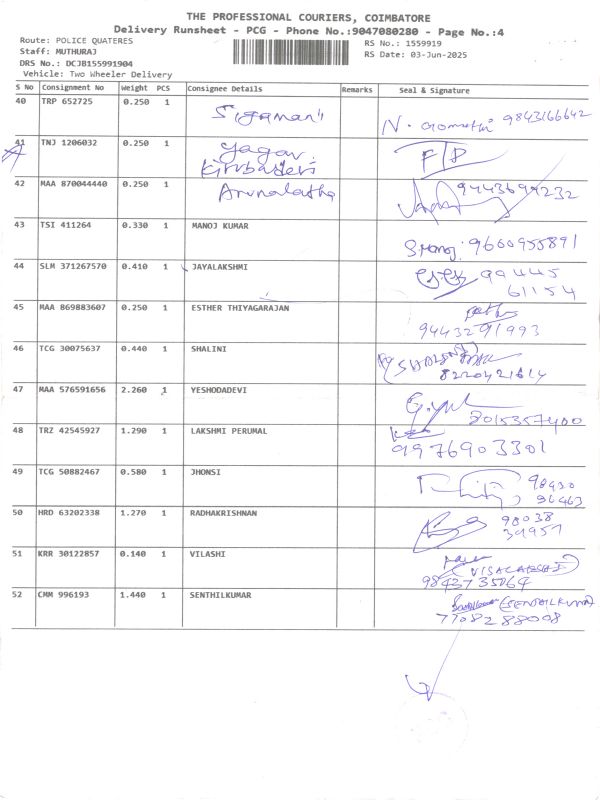 THE PROFESSIONAL COURIERS, COIMBATORE
Delivery Runsheet - PCG - Phone No.:9047080280 - Page No.:4
Route: POLICE QUATERES
RS No.: 1559919
Staff: MUTHURAJ
RS Date: 03-Jun-2025
DRS No.: DCJB155991904
Vehicle: Two Wheeler Delivery
S No Consignment No Weight PCS Consignee Details Remarks Seal & Signature
40 TRP 652725 0.250 1 N. 9843166642
41 TNJ 1206032 0.250 1
42 MAA 870044440 0.250 1 Arunalatha 9443699232
43 TSI 411264 0.330 1 MANOJ KUMAR 9600955891
44 SLM 371267570 0.410 1 JAYALAKSHMI 99445
61154
45 MAA 869883607 0.250 1 ESTHER THIYAGARAJAN
9443291993
46 TCG 30075637 0.440 1 SHALINI
8220421614
47 MAA 576591656 2.260 1 YESHODADEVI
8015357400
48 TRZ 42545927 1.290 1 LAKSHMI PERUMAL
9976903301
49 TCG 50882467 0.580 1 JHONSI
50 HRD 63202338 1.270 1 RADHAKRISHNAN 98038
34957
51 KRR 30122857 0.140 1 VILASHI
9843735064
52 CMM 996193 1.440 1 SENTHILKUMAR (SENTHILKUMAR)
7708288008